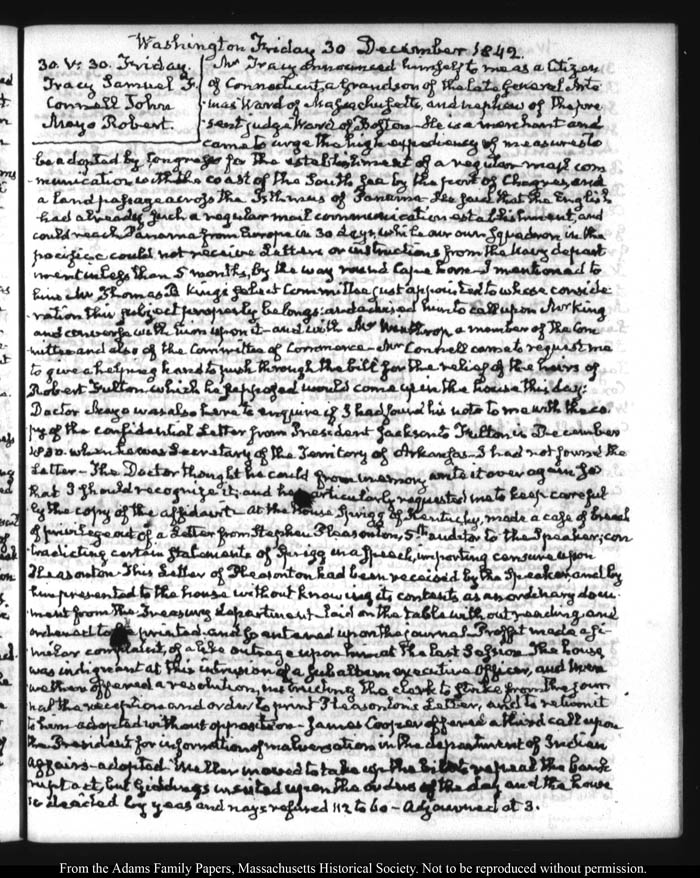 Washington Friday 30 December 1842.
30. V: 30. Friday.
Tracy Samuel F.
Connell John
Mayo Robert.
Mr Tracy announced himself to me as a Citizen
of Connecticut, a Grandson of the late General Arte
mas Ward of Massachusetts, and nephew of the pre
sent judge Ward of Boston— He is a merchant and
came to urge the high expediency of measures to
be adopted by Congress for the establishment of a regular mail com
munication with the coast of the South Sea by the port of Chagres, and
a land passage across the Isthmus of Panama— He said that the English
had already such a regular mail communication establishment, and
could reach Panama from Europe in 30 days, while our own Squadron in the
pacific could not receive Letters or instructions from the Navy depart
ment in less than 5 months, by the way round Cape horn— I mentioned to
him Mr Thomas B King's select Committee just appointed to whose conside
ration this subject properly belongs: and advised him to call upon Mr King
and converse with him upon it— and with Mr Winthrop a member of the Com
mittee and also of the Committee of Commerce— Mr Connell came to request me
to give a helping hand to push through the bill for the relief of the heirs of
Robert Fulton which he supposed would come up in the house this day:
Doctor Mayo was also here to enquire if I had found his note to me with the co
py of the confidential Letter from President Jackson to Fulton in December
1830. when he was Secretary of the Territory of Arkansas— I had not found the
Letter— The Doctor thought he could from memory write it over again so
that I should recognize it; and he particularly requested me to keep careful
ly the copy of the affidavit— At the House Sprigg of Kentucky, made a case of breach
of privilege out of a Letter from Stephen Pleasonton, 5th auditor to the Speaker, con
tradicting certain statements of Sprigg in a Speech, importing censure upon
Pleasonton. This Letter of Pleasonton had been received by the Speaker, and by
him presented to the house without knowing its contents as an ordinary docu
ment from the Treasury department— laid on the table without reading, and
ordered to be printed. and so entered upon the journal. Proffit made a si
milar complaint, of a like outrage upon him at the last Session. The house
was indignant at this intrusion of a Subaltern executive Officer, and
Weller offered a resolution, instructing the clerk to strike from the jour
nal the reception and order to print Pleasonton's Letter, and to return it
to him adopted without opposition— James Cooper offered a third call upon
the President for information of malversation in the department of Indian
Affairs— adopted. Weller moved to take up the bill to repeal the bank
rupt act, but Giddings insisted upon the orders of the day and the house
by yeas and nays refused 112 to 60— Adjourned at 3.
From the Adams Family Papers, Massachusetts Historical Society. Not to be reproduced without permission.